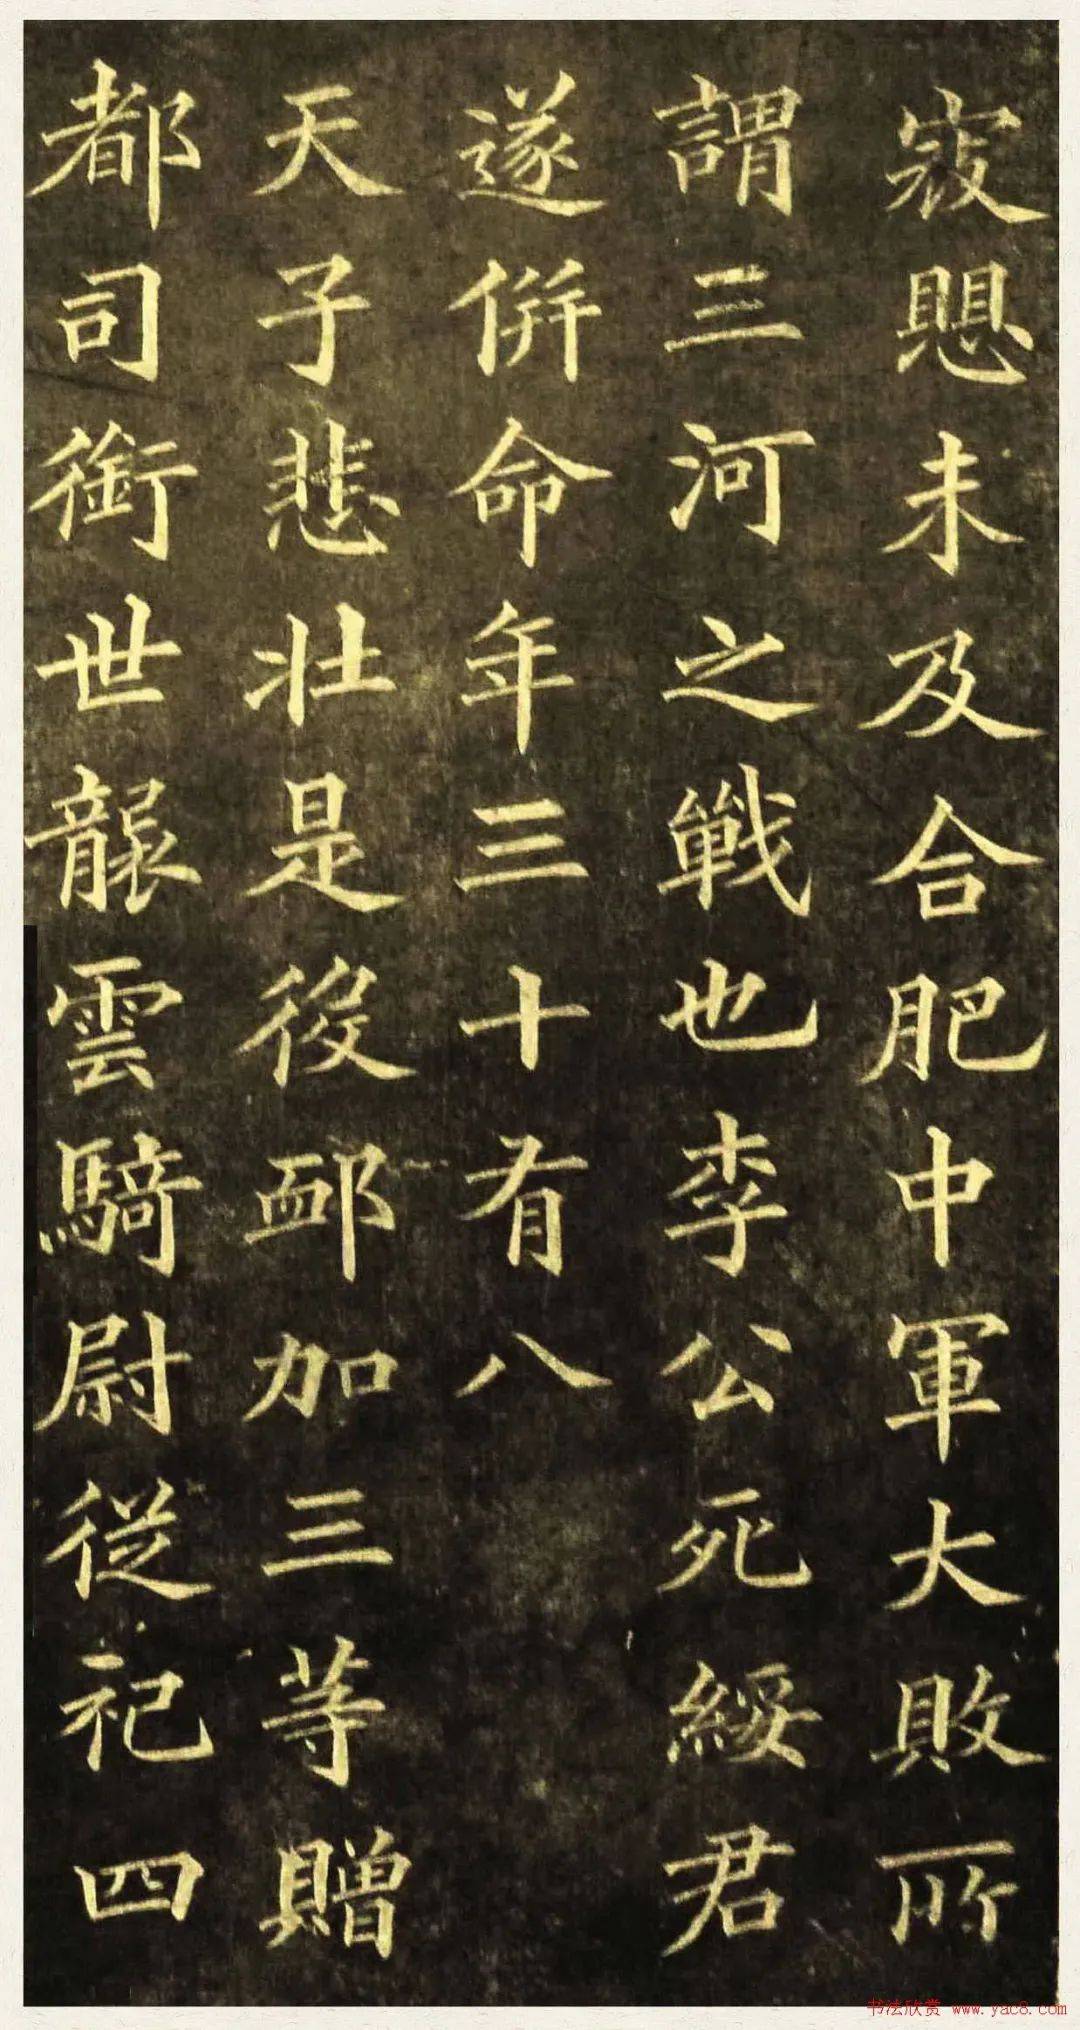 寇愳未及合肥中軍大敗所
謂三河之戰也李公死綏君
遂併命年三十有八
天子悲壯是後卹加三等贈
都司銜世襲雲騎尉從祀四
书法欣赏 www.yac8.com